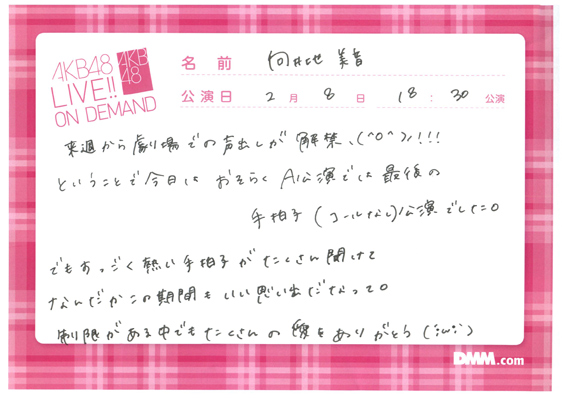 AKB48
LIVE!!
ON DEMAND
AKB
48
名前 向井地 美音
公演日 2月 8日 18:30 公演
来週から劇場での声出しが解禁ヽ(^o^)ﾉ!!!
ということで今日は おそらくA公演では最後の
手拍子(コールなし)公演でした。
でもすっごく熱い手拍子がたくさん聞けて
なんだかこの期間もいい思い出だなって。
制限がある中でもたくさんの愛をありがとう(;ω;)
DMM.com